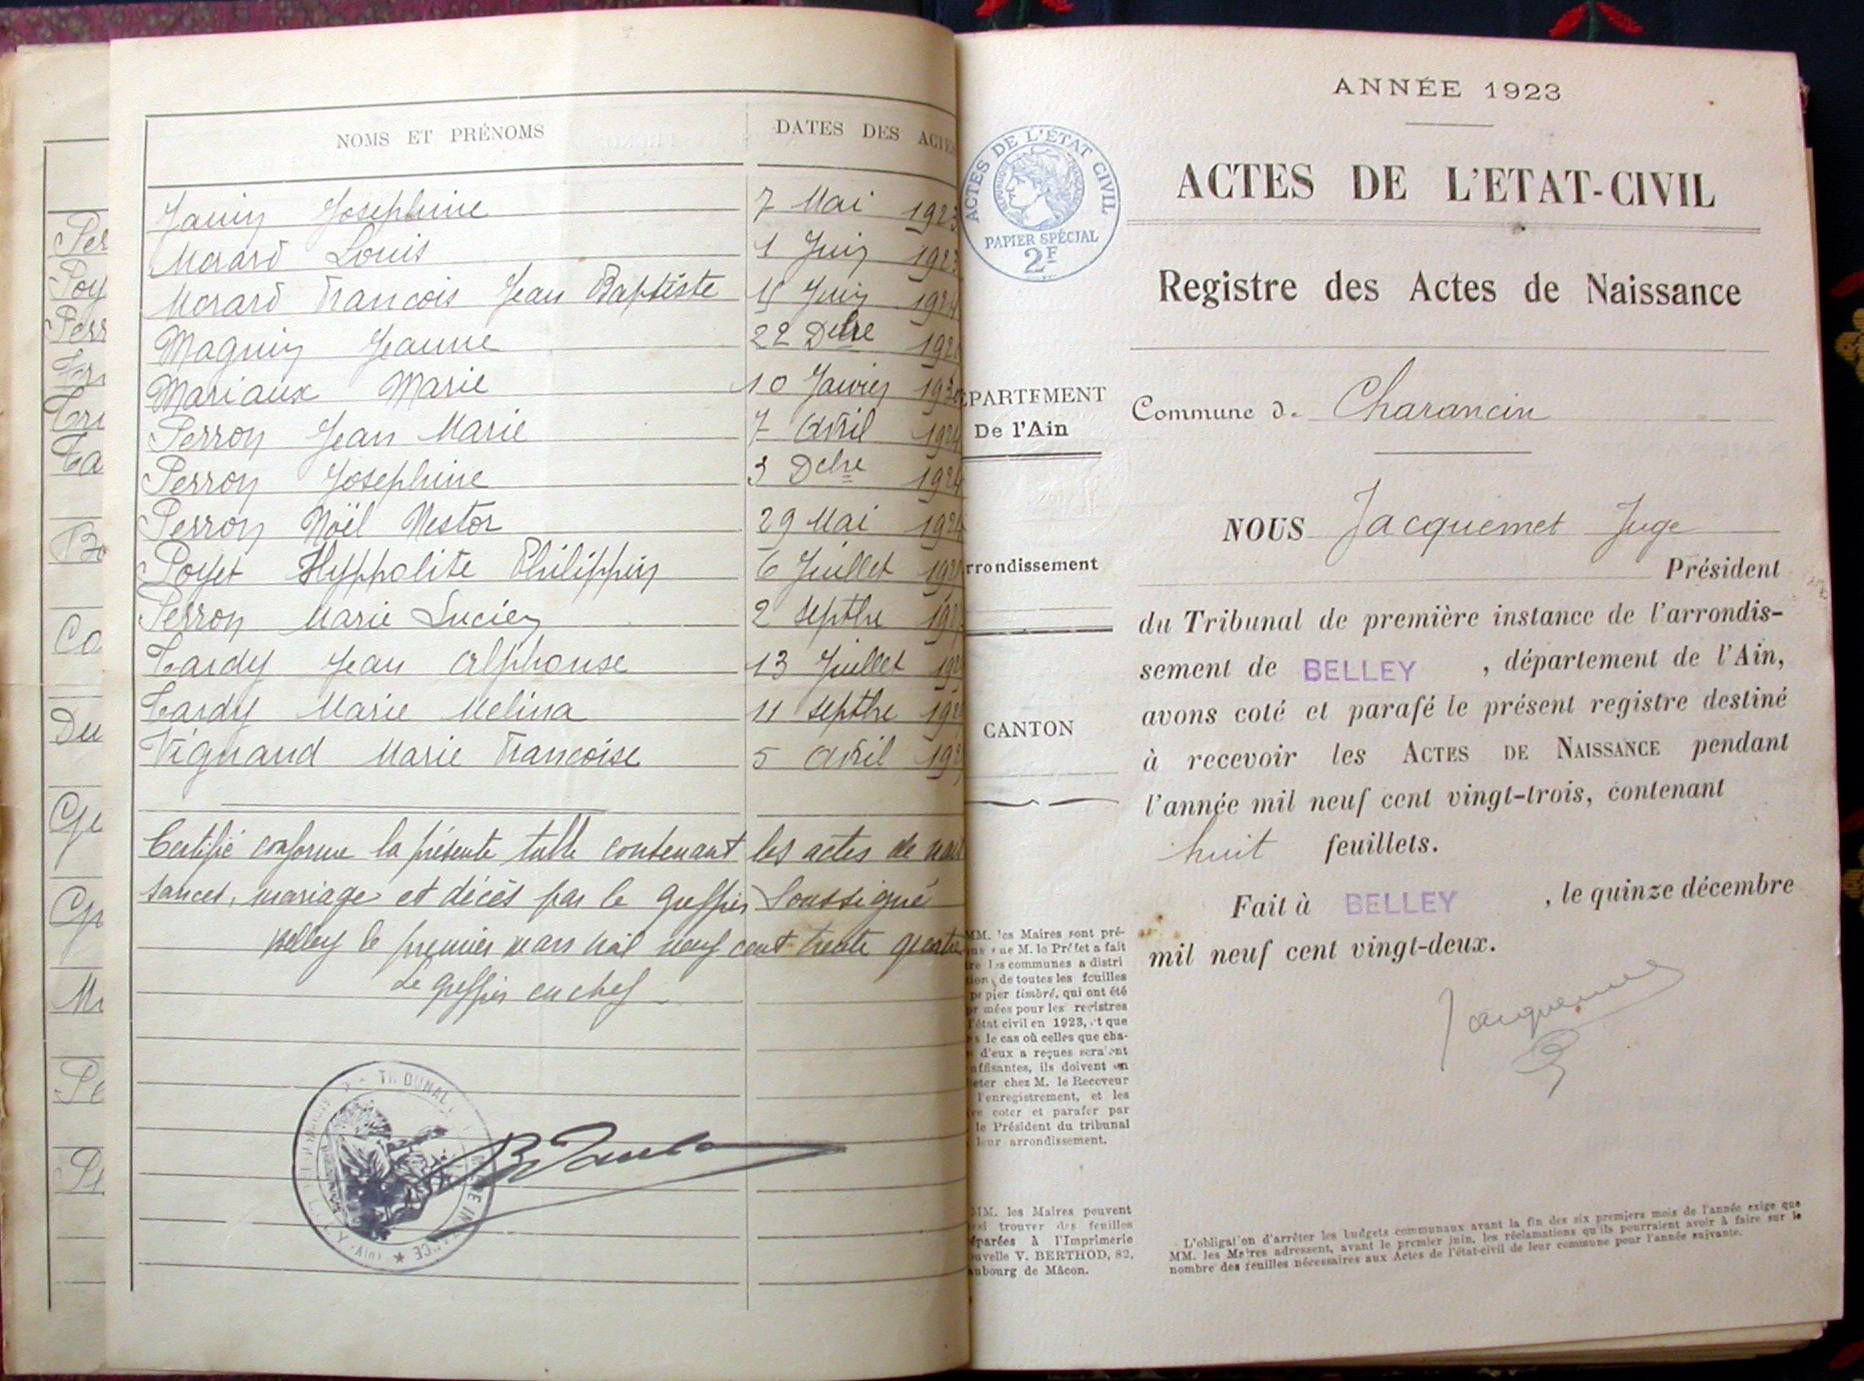 Per
Poy
Perr
Tri
Ta
Bo
Ca
Du
Ge
Ma
Pe
NOMS ET PRÉNOMS DATES DES ACTES
Josephine 7 Mai 1923
Morard Louis 1 Juin 192
Morard Francois Jean Baptiste Juin 192
Magnin Jeanne 22 Dcbre 192
Mariaux Marie 10 Janvier 1930
Perron Jean Marie 7 Avril 192
Perron Josephine 3 Dcbre 192
Perron Noël Nestor 29 Mai 192
Poyet Hyppolite Philippin 6 Juillet 192
Perron Marie Lucien 2 Septbre 192
Tardy Jean Alphonse 13 Juillet 192
Tardy Marie Melina 11 Septbre 192
Vignand Marie Francoise 5 Avril 192
Certifié conforme la présente table contenant les actes de nais
sances, mariage et décès par le greffier soussigné
Belley le premier mars mil neuf cent trente quatre
Le greffier en chef
TRIBUNAL
ANNÉE 1923
ACTES DE L'ÉTAT CIVIL
PAPIER SPÉCIAL
2F
ACTES DE L'ETAT-CIVIL
Registre des Actes de Naissance
PARTEMENT
De l'Ain
rrondissement
CANTON
Commune de Charancin
NOUS Jacquemet Juge
Président
du Tribunal de première instance de l'arrondis-
sement de BELLEY, département de l'Ain,
avons coté et parafé le présent registre destiné
à recevoir les ACTES DE NAISSANCE pendant
l'année mil neuf cent vingt-trois, contenant
huit feuillets.
Fait à BELLEY, le quinze décembre
mil neuf cent vingt-deux.
Jacquemet
MM. les Maires sont pré-
que M. le Préfet a fait
les communes a distri
de toutes les feuilles
timbré, qui ont été
mées pour les registres
l'état civil en 1923, et que
le cas où celles que cha-
d'eux a reçues seraient
uffisantes, ils doivent en
eter chez M. le Receveur
l'enregistrement, et les
coter et parafer par
le Président du tribunal
leur arrondissement.
MM. les Maires peuvent
trouver des feuilles
éparées à l'Imprimerie
uvelle V. BERTHOD, 82,
ubourg de Mâcon.
L'obligation d'arrêter les budgets communaux avant la fin des six premiers mois de l'année exige que
MM. les Maires adressent, avant le premier juin, les réclamations qu'ils pourraient avoir à faire sur le
nombre des feuilles nécessaires aux Actes de l'état-civil de leur commune pour l'année suivante.